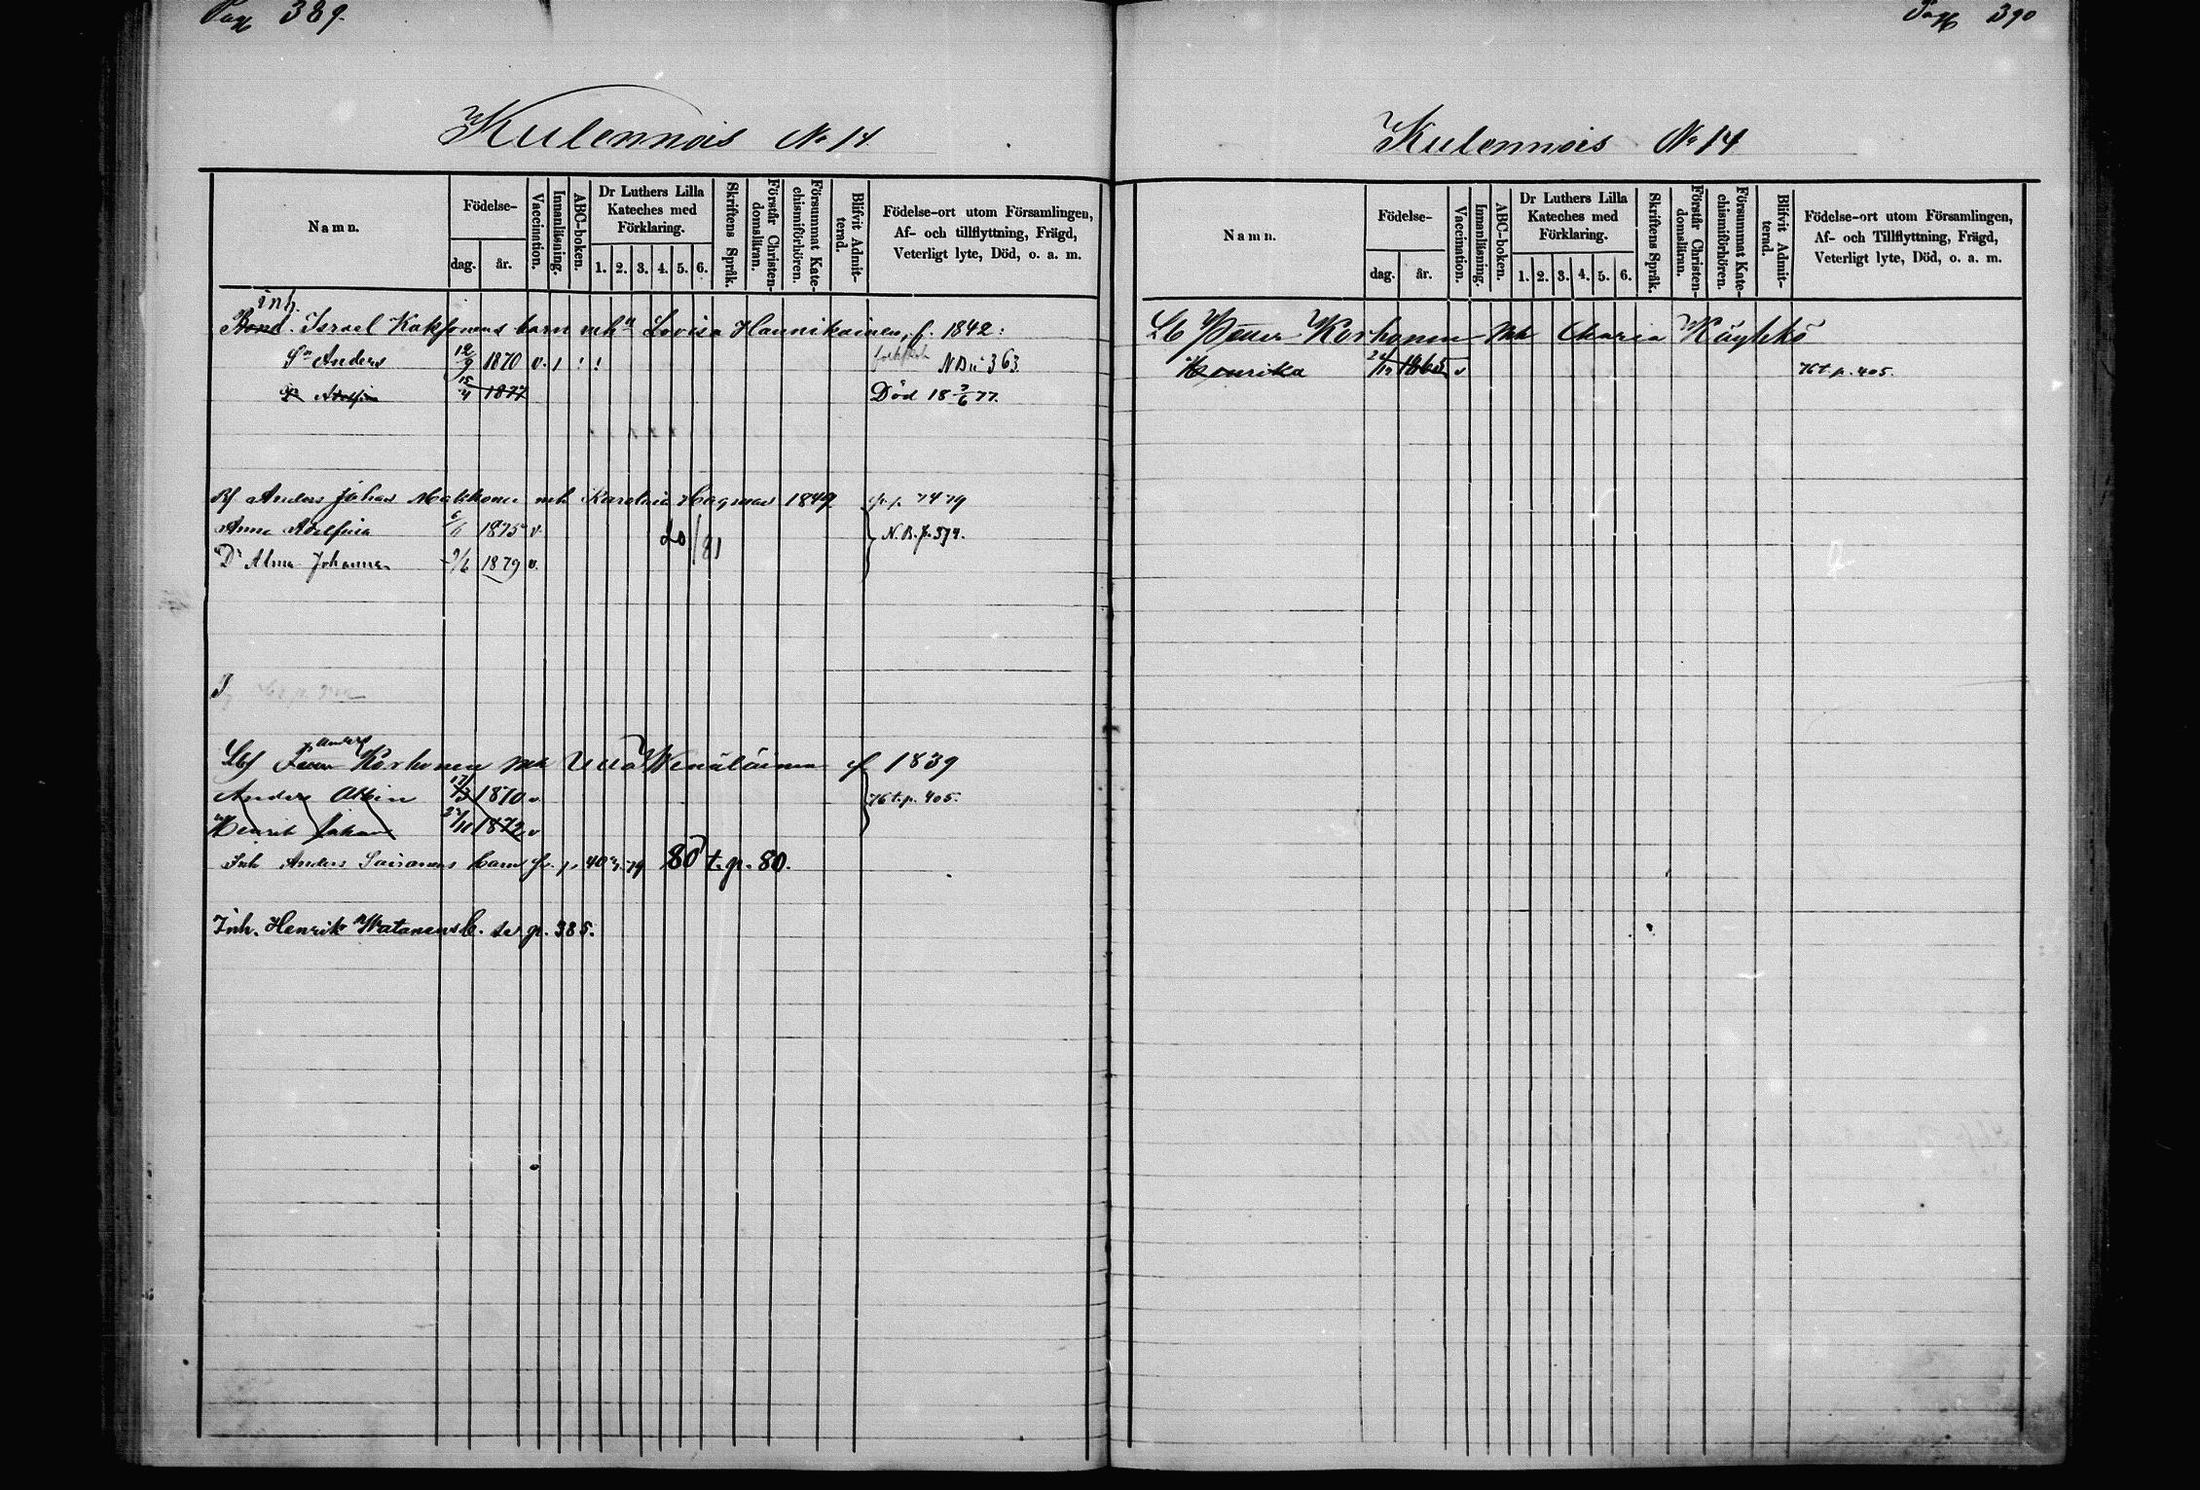 Pag 389.
Kulennois No 14
Namn.
Födelse-
dag. år.
Vaccination.
Innanläsning.
ABC-boken.
Dr Luthers Lilla Kateches med Förklaring.
1. 2. 3. 4. 5. 6.
Skriftens Språk.
Förstår Christendomsläran.
Försummat Katechismiförhören.
Blifvit Admitterad.
Födelse-ort utom Församlingen, Af- och tillflyttning, Frägd, Veterligt lyte, Död, o. a. m.
inh.
Bond. Israel Kaksonens barn mh Lovisa Hannikainen, f. 1842:
Sn Anders 12/9 1870 v. 1 ! ! N Bu 363
Dr Adolfina 15/4 1877 Död 18 2/6 77.
Anders Johan Makkonen mh Karolina Hagman 1849 fr. p. 7479
Anna Adelfina 6/6 1875 v. 20/81 N. B. p. 374.
D Alma Johanna 9/6 1879 v.
Anders
Korhonen mh Ulla Wenäläinen f 1839
Anders Albin 17/3 1870 v 76 t. p. 405.
Henrik Johan 1872 v
Inh Anders Sairanens barn fr. p. 40 79 80 t. p. 80.
Inh. Henrik Watanens b. se p. 385.
Pag 390
Kulennois No 14
Namn.
Födelse-
dag. år.
Vaccination.
Innanläsning.
ABC-boken.
Dr Luthers Lilla Kateches med Förklaring.
1. 2. 3. 4. 5. 6.
Skriftens Språk.
Förstår Christendomsläran.
Försummat Katechismiförhören.
Blifvit Admitterad.
Födelse-ort utom Församlingen, Af- och Tillflyttning, Frägd, Veterligt lyte, Död, o. a. m.
Lb Petter Korhonen mh Maria Käyhkö
Henrika 24/12 1865 v 76 t. p. 405.